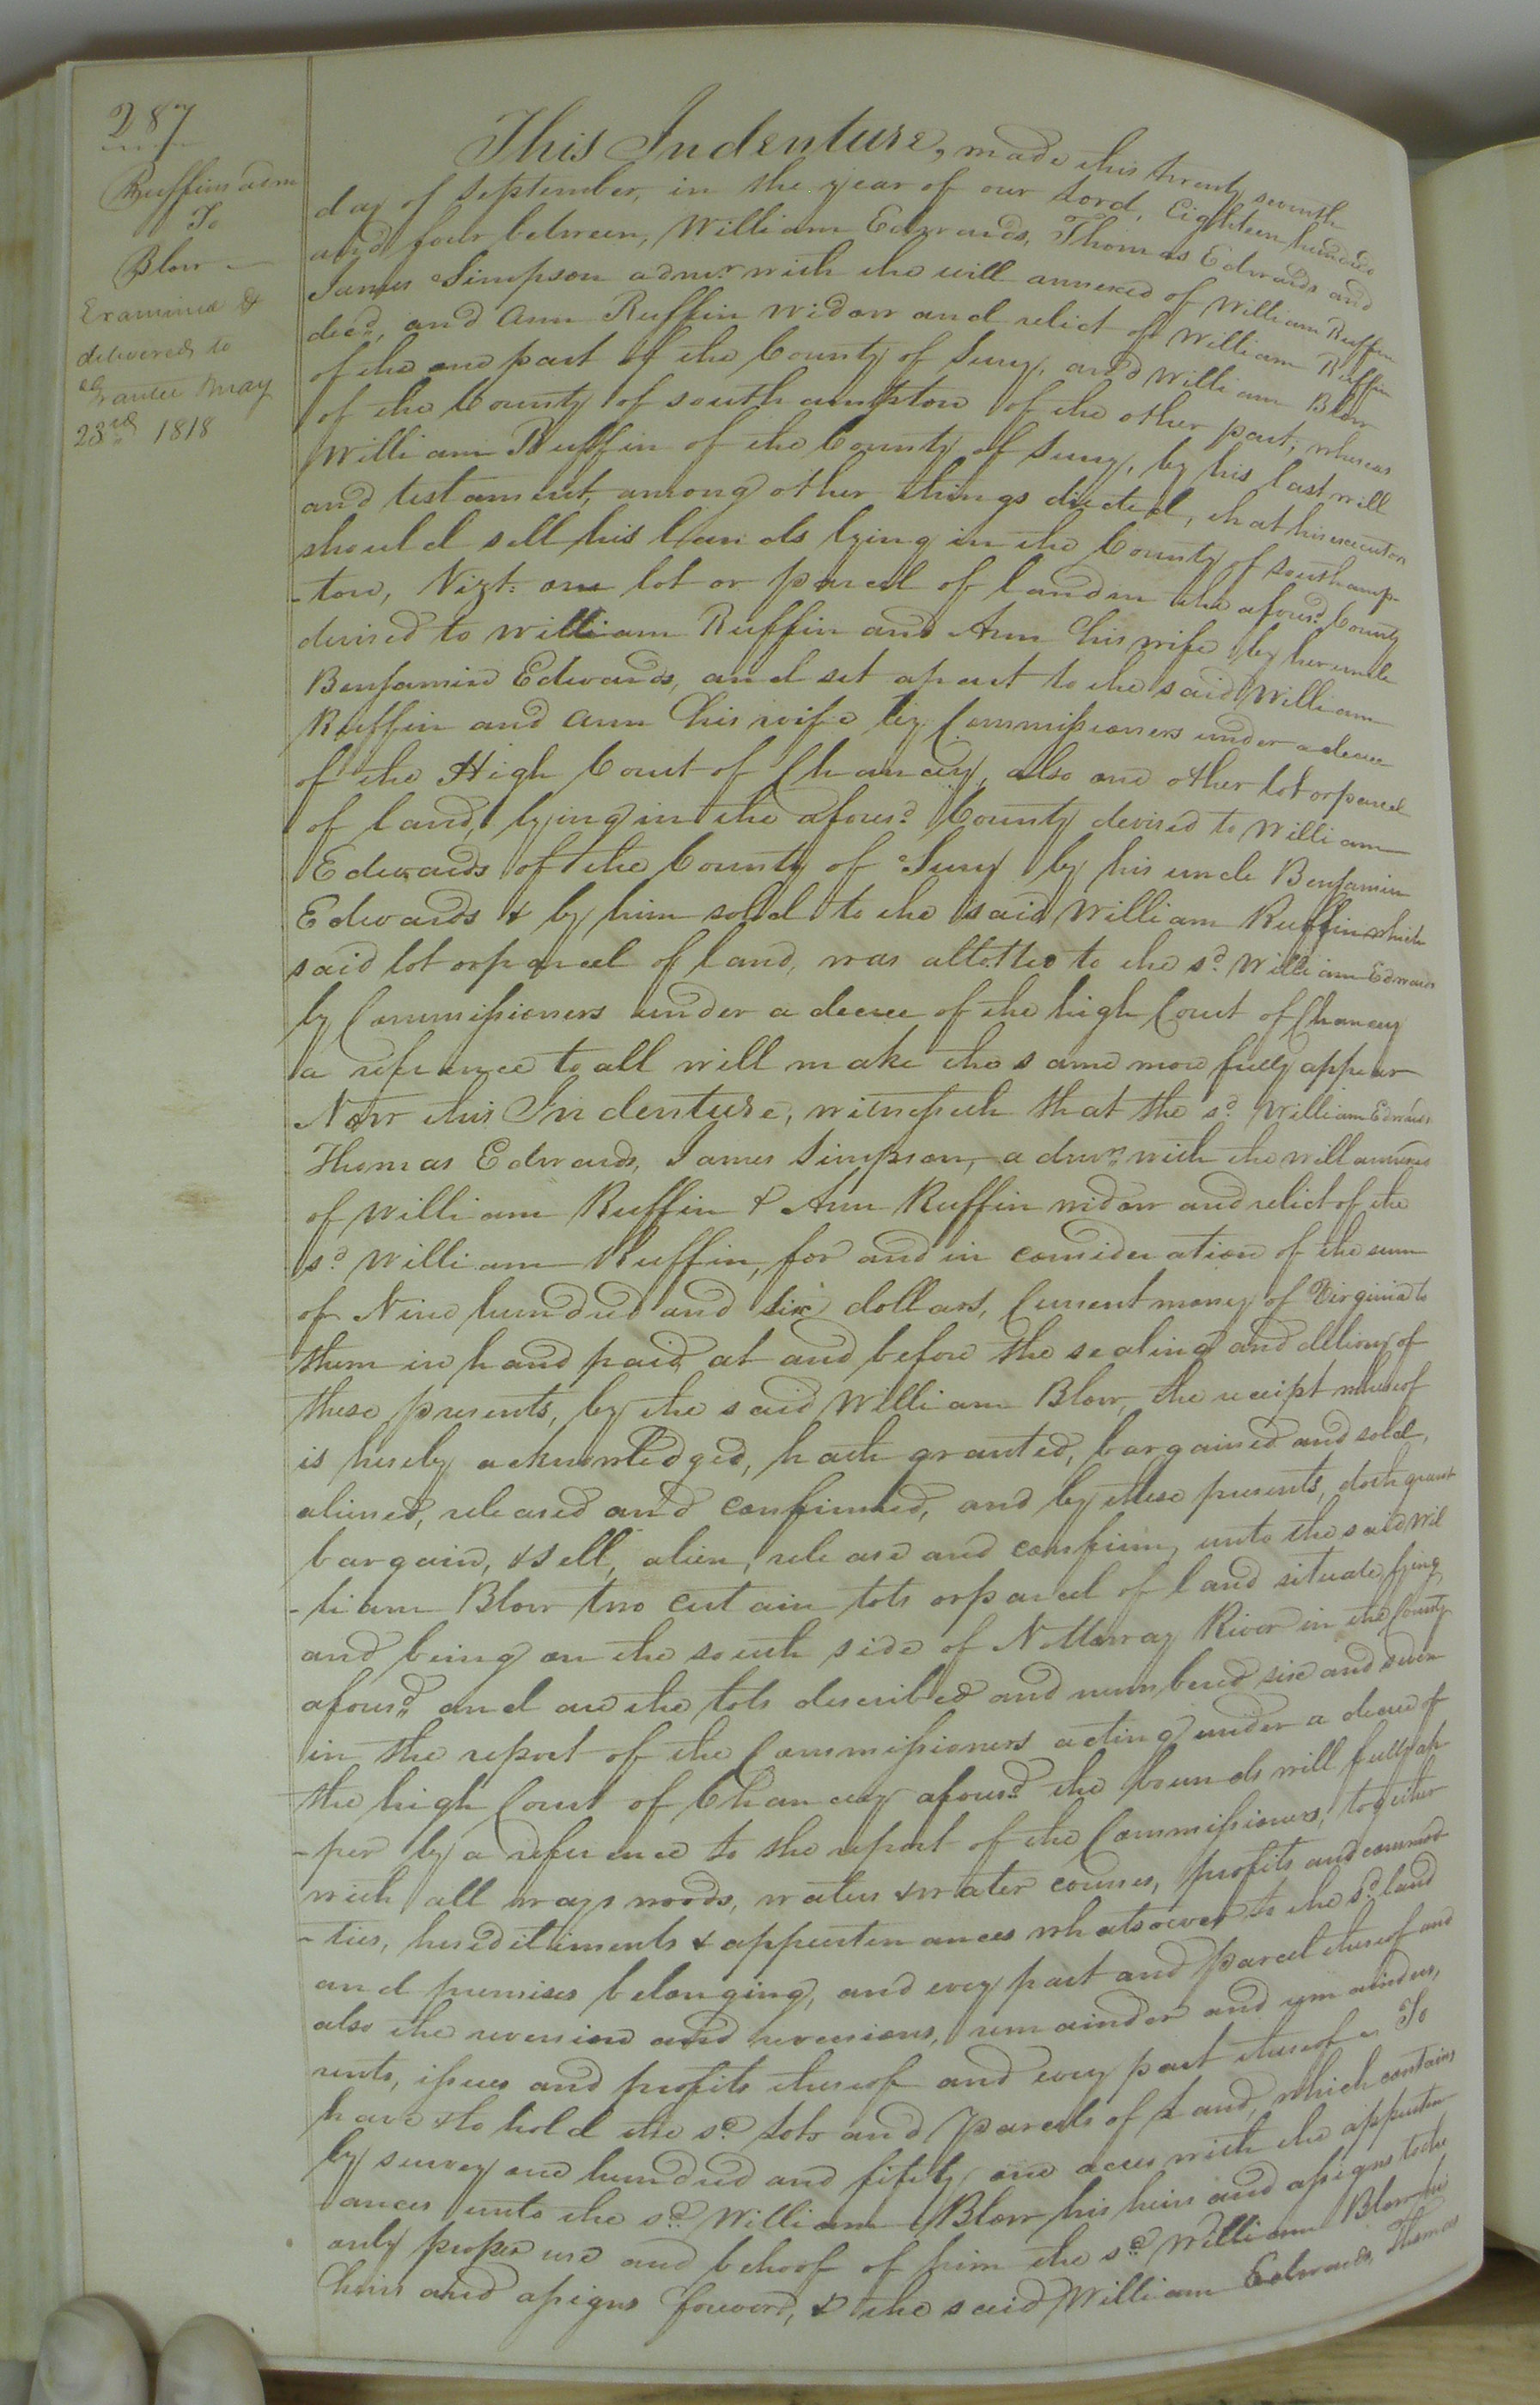 287
Ruffins adm
To
Blow
Examined &
delivered to
Grantee May
23rd 1818
This Indenture, made this twenty seventh
day of September, in the year of our Lord, Eighteen hundred
and four between, William Edwards, Thomas Edwards and
James Simpson admr. with the will annexed of William Ruffin
decd, and Ann Ruffin widow and relict of William Ruffin
of the one part of the County of Surry, and William Blow
of the County of Southampton of the other part, whereas
William Ruffin of the County of Surry, by his last will
and testament, among other things directed, that his executors
should sell his lands lying in the County of Southamp-
-ton, Vizt: one lot or parcel of land in the aforesd. County
devised to William Ruffin and Ann his wife by her uncle
Benjamin Edwards, and set apart to the said William
Ruffin and Ann his wife by Commissioners under a decree
of the High Court of Chancery, also one other lot or parcel
of land, lying in the aforesd. County devised to William
Edwards of the County of Surry by his uncle Benjamin
Edwards & by him sold to the said William Ruffin which
said lot or parcel of land, was allotted to the sd. William Edwards
by Commissioners under a decree of the high Court of Chancery
a reference to all will make the same more fully appear
Now this Indenture, witnesseth that the sd. William Edwards
Thomas Edwards, James Simpson, admrs. with the will annexed
of William Ruffin & Ann Ruffin widow and relict of the
sd. William Ruffin, for and in consideration of the sum
of Nine hundred and six dollars, Current money of Virginia to
them in hand paid, at and before the sealing and delivery of
these presents, by the said William Blow, the receipt whereof
is hereby acknowledged, hath granted, bargained and sold,
aliened, released and confirmed, and by these presents, doth grant
bargain, & sell, alien, release and confirm, unto the said Wil
-liam Blow two certain lots or parcel of land situate lying
and being on the south side of Nottoway River in the County
aforesd. and are the lots described and numbered six and seven
in the report of the Commissioners acting under a decree of
the high Court of Chancery aforesd. the bounds will fully ap
-per by a reference to the report of the Commissioners, together
with all ways woods, waters & water courses, profits and commod
-ties, hereditiments & appurtenances whatsoever to the sd. land
and premises belonging, and every part and parcel thereof and
also the reversion and reversions, remainder and remainders,
rents, issues and profits thereof and every part thereof To
have & to hold the sd. lots and parcels of Land, which contains
by survey one hundred and fifty one acres with the appurten
ances unto the sd. William Blow his heirs and assigns to the
only proper use and behoof of him the sd. William Blow his
heirs and assigns forever, & the said William Edwards, Thomas